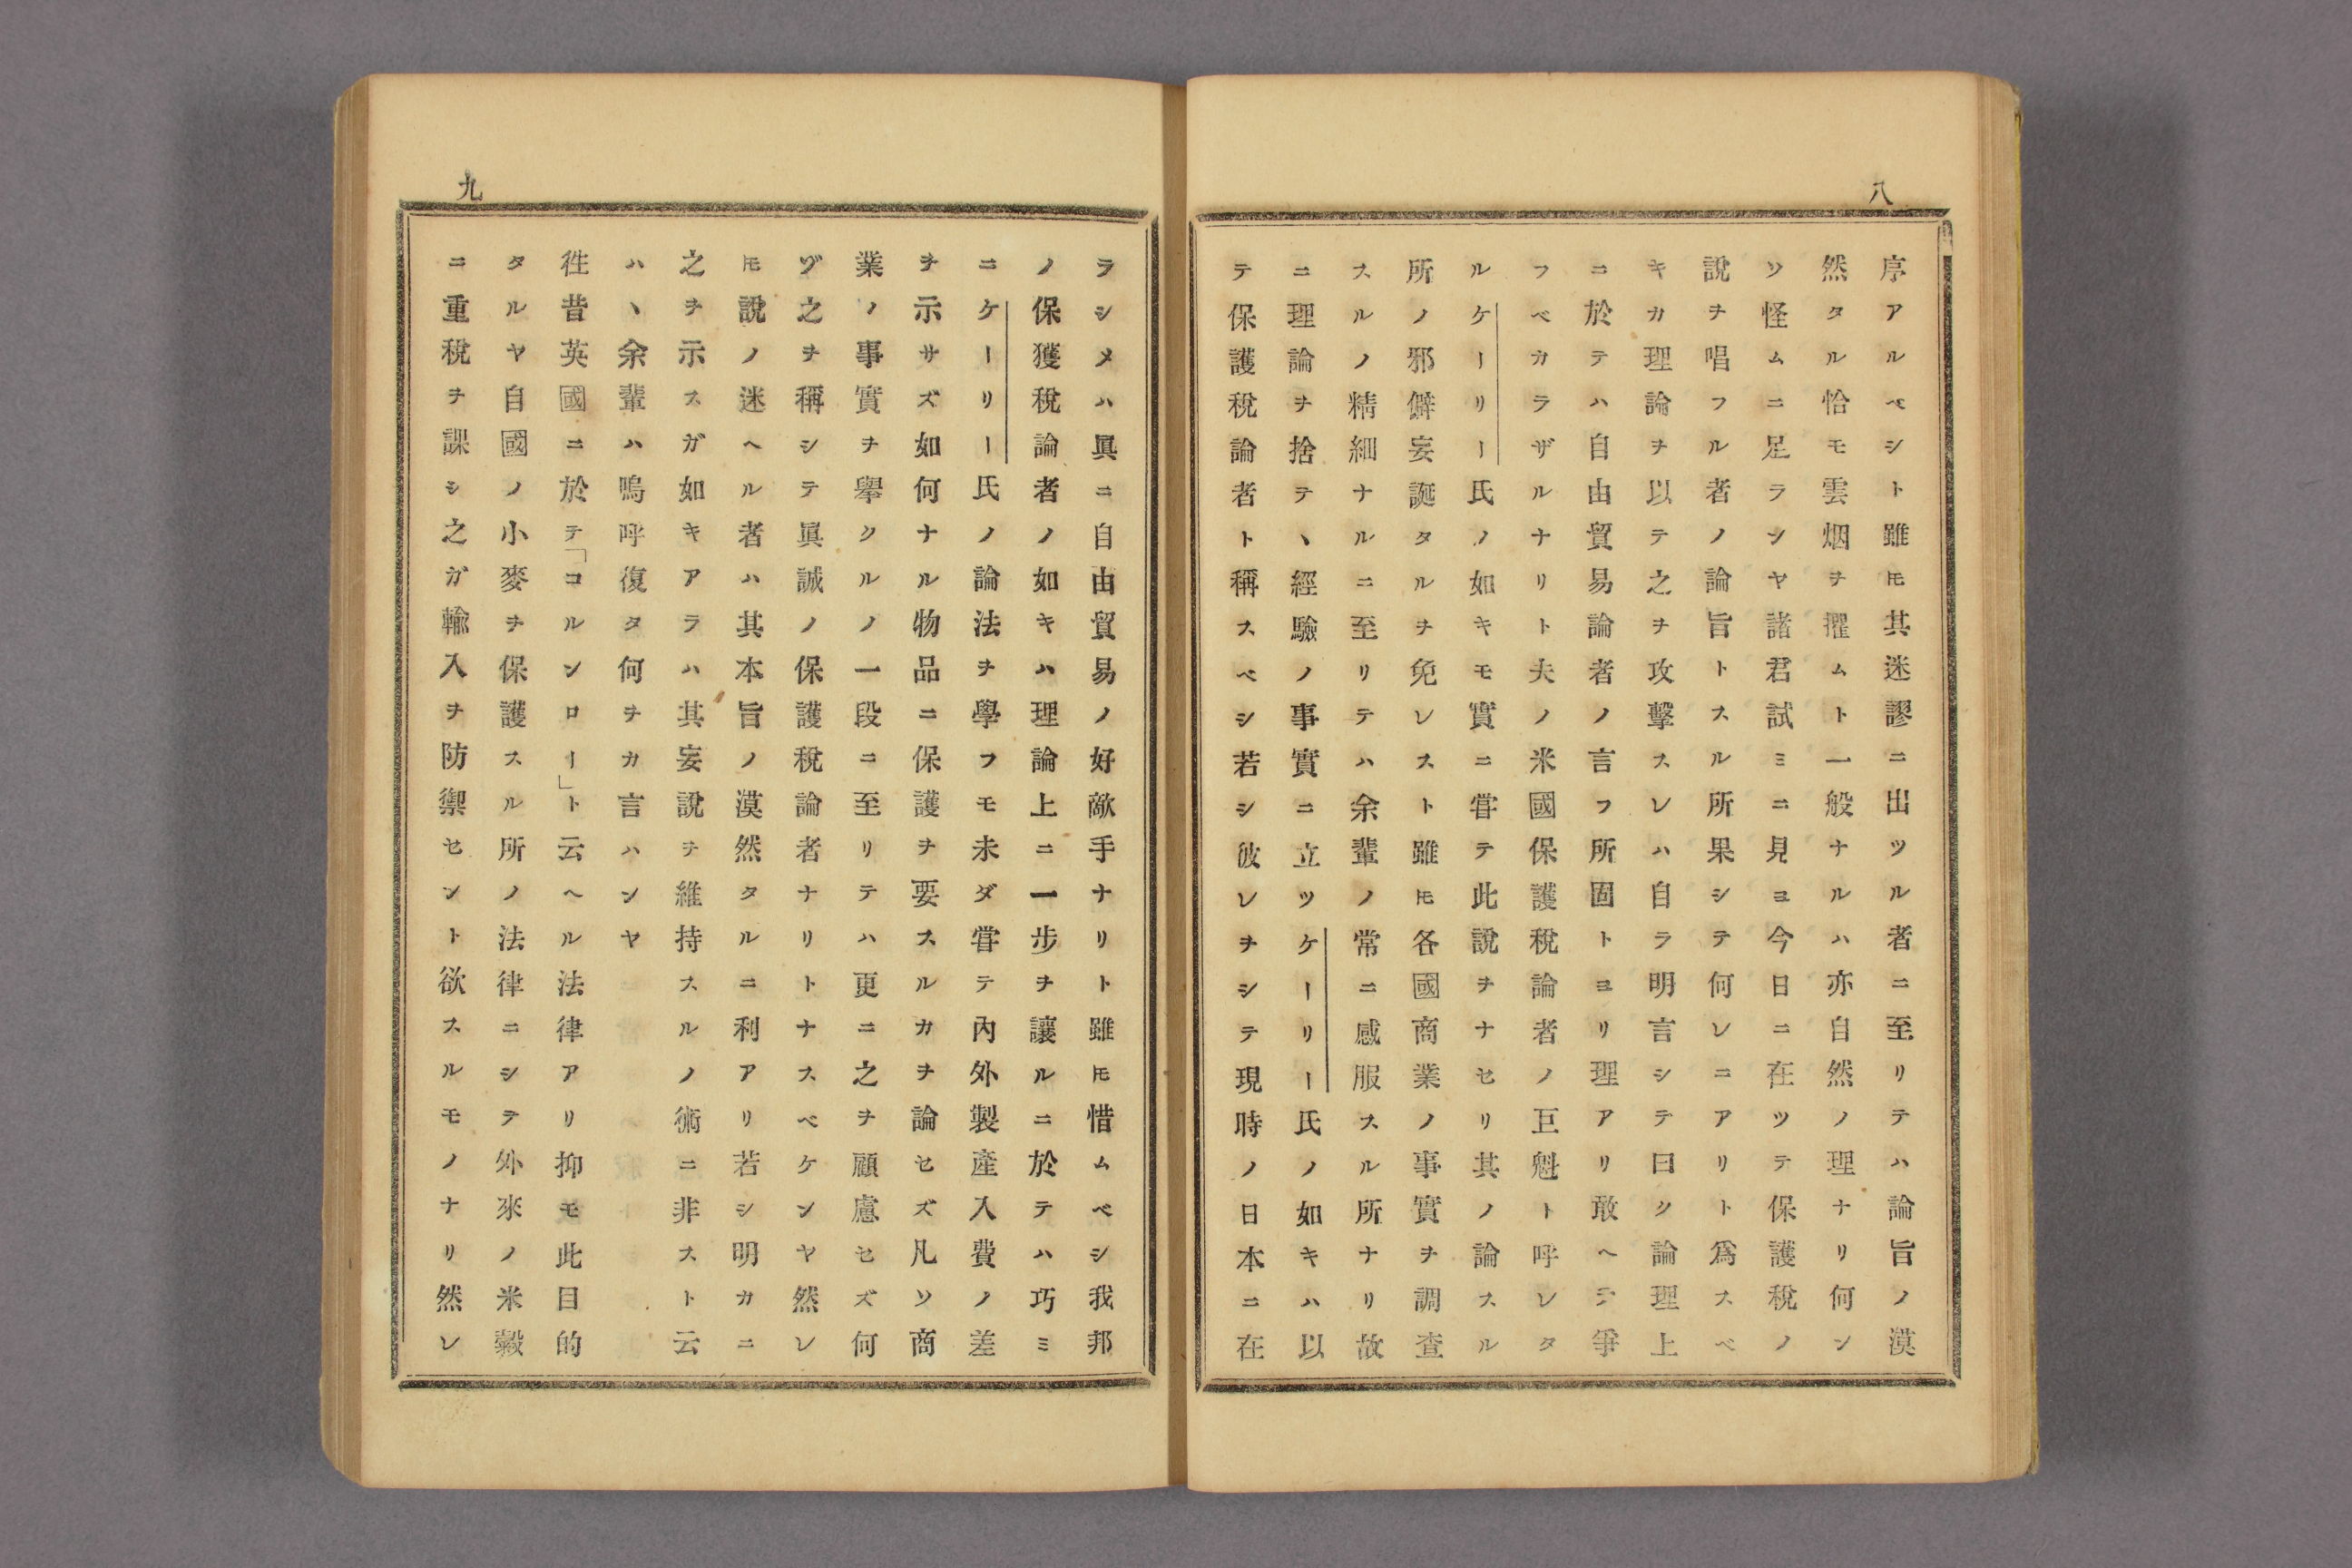 八
序アルベシト雖𪜈其迷謬ニ出ツル者ニ至リテハ論旨ノ漠
然タル恰モ雲烟ヲ攫ムト一般ナルハ亦自然ノ理ナリ何ン
ソ怪ムニ足ランヤ諸君試ミニ見ヨ今日ニ在ツテ保護稅ノ
說ヲ唱フル者ノ論旨トスル所果シテ何レニアリト爲スベ
キカ理論ヲ以テ之ヲ攻擊スレハ自ラ明言シテ曰ク論理上
ニ於テハ自由貿易論者ノ言フ所固トヨリ理アリ敢ヘテ爭
フベカラザルナリト夫ノ米國保護稅論者ノ巨魁ト呼レタ
ルケーリー氏ノ如キモ實ニ甞テ此說ヲナセリ其ノ論スル
所ノ邪僻妄誕タルヲ免レスト雖𪜈各國商業ノ事實ヲ調査
スルノ精細ナルニ至リテハ余輩ノ常ニ感服スル所ナリ故
ニ理論ヲ捨テヽ經驗ノ事實ニ立ツケーリー氏ノ如キハ以
テ保護稅論者ト稱スベシ若シ彼レヲシテ現時ノ日本ニ在
九
ラシメハ眞ニ自由貿易ノ好敵手ナリト雖𪜈惜ムベシ我邦
ノ保獲稅論者ノ如キハ理論上ニ一步ヲ讓ルニ於テハ巧ミ
ニケーリー氏ノ論法ヲ學フモ未ダ甞テ內外製產入費ノ差
ヲ示サズ如何ナル物品ニ保護ヲ要スルカヲ論セズ凡ソ商
業ノ事實ヲ擧クルノ一段ニ至リテハ更ニ之ヲ顧慮セズ何
ヅ之ヲ稱シテ眞誠ノ保護稅論者ナリトナスベケンヤ然レ
𪜈說ノ迷ヘル者ハ其本旨ノ漠然タルニ利アリ若シ明カニ
之ヲ示スガ如キアラハ其妄說ヲ維持スルノ術ニ非スト云
ハヽ余輩ハ嗚呼復タ何ヲカ言ハンヤ
徃昔英國ニ於テ「コルンロー」ト云ヘル法律アリ抑モ此目的
タルヤ自國ノ小麥ヲ保護スル所ノ法律ニシテ外來ノ米糓
ニ重稅ヲ課シ之ガ輸入ヲ防禦セント欲スルモノナリ然レ